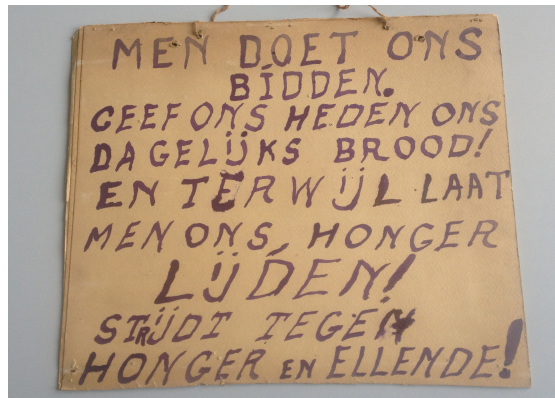 MEN DOET ONS
BIDDEN.
GEEF ONS HEDEN ONS
DAGELIJKS BROOD!
EN TERWIJL LAAT
MEN ONS, HONGER
LIJDEN!
STRIJDT TEGEN
HONGER EN ELLENDE!